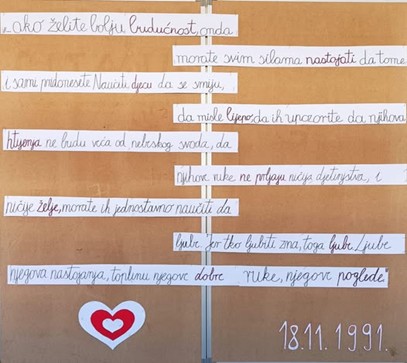 „Ako želite bolju budućnost, onda
morate svim silama nastojati da tome
i sami pridonesete. Naučite djecu da se smiju,
da misle lijepo, da ih upozorite da njihova
htijenja ne budu veća od nebeskog svoda, da
njihove ruke ne prljaju ničija djetinjstva, i
ničije želje, morate ih jednostavno naučiti da
ljube jer tko ljubiti zna, toga ljube. Ljube
njegova nastojanja, toplinu njegove dobre ruke, njegove poglede."
18.11.1991.